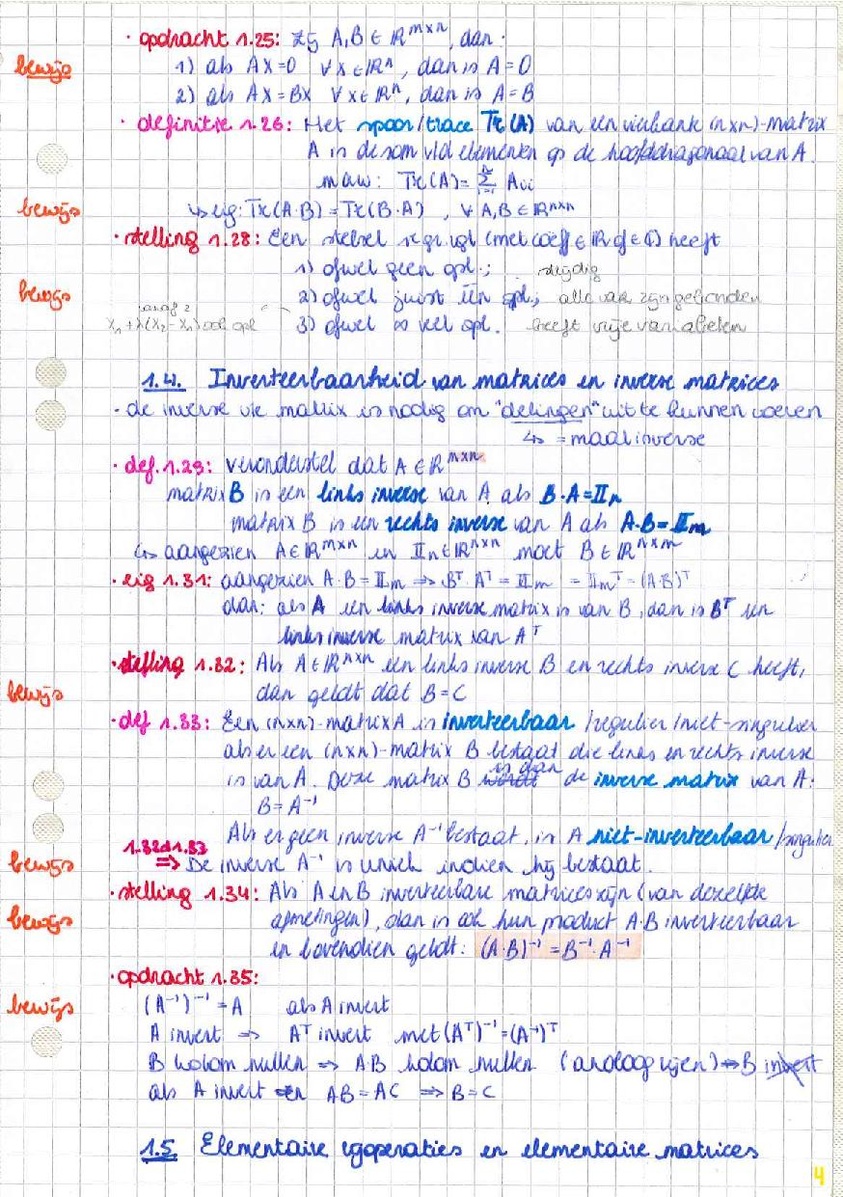 · opdracht 1.25: zij A,B ∈ ℝ^{m×n}, dan:
bewijs 1) als AX=0 ∀X∈ℝⁿ, dan is A=0
2) als AX=BX ∀X∈ℝⁿ, dan is A=B
· definitie 1.26: Het spoor/trace Tr(A) van een vierkante (n×n)-matrix
A is de som v/d elementen op de hoofddiagonaal van A.
maw: Tr(A)= Σ_{i=1}^{n} A_{ii}
bewijs ↳ eig: Tr(A·B)=Tr(B·A) , ∀ A,B∈ℝ^{n×n}
· stelling 1.28: Een stelsel vgl (met coëff ∈ ℝ of ∈ ℂ) heeft
1) ofwel geen opl.; strijdig
bewijs 2) ofwel juist één opl.; alle var zijn gebonden
vanaf 2
X₁+λ(X₂-X₁) ook opl 3) ofwel ∞ veel opl. heeft vrije variabelen
1.4. Inverteerbaarheid van matrices en inverse matrices
· de inverse v/e matrix is nodig om "delingen" uit te kunnen voeren
↳ = maal inverse
· def. 1.29: veronderstel dat A ∈ ℝ^{m×n}
matrix B is een links inverse van A als B·A=𝕀ₙ
matrix B is een rechts inverse van A als A·B=𝕀ₘ
↳ aangezien A∈ℝ^{m×n} en 𝕀ₙ∈ℝ^{n×n} moet B∈ℝ^{n×m}
· eig 1.31: aangezien A·B=𝕀ₘ ⇒ Bᵀ·Aᵀ=𝕀ₘ =𝕀ₘᵀ=(A·B)ᵀ
dan: als A een links inverse matrix is van B, dan is Bᵀ een
links inverse matrix van Aᵀ
· stelling 1.32: Als A∈ℝ^{n×n} een links inverse B en rechts inverse C heeft,
bewijs dan geldt dat B=C
· def 1.33: Een (n×n)-matrix A is inverteerbaar /regulier /niet-singulier
als er een (n×n)-matrix B bestaat die links en rechts inverse
is van A. Deze matrix B is dan de inverse matrix van A:
B=A⁻¹
Als er geen inverse A⁻¹ bestaat, is A niet-inverteerbaar /singulier
1.32 1.33
bewijs ⇒ De inverse A⁻¹ is uniek indien hij bestaat.
· stelling 1.34: Als A en B inverteerbare matrices zijn (van dezelfde
bewijs afmetingen), dan is ook hun product A·B inverteerbaar
en bovendien geldt: (A·B)⁻¹=B⁻¹·A⁻¹
· opdracht 1.35:
bewijs (A⁻¹)⁻¹=A als A invert
A invert ⇒ Aᵀ invert met (Aᵀ)⁻¹=(A⁻¹)ᵀ
B kolom nullen ⇒ A·B kolom nullen (analoog rijen) ⇒ B invert
als A invert en AB=AC ⇒ B=C
1.5 Elementaire rijoperaties en elementaire matrices
4